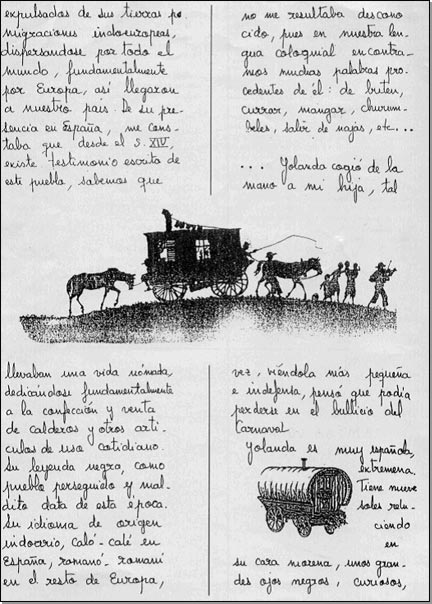 expulsados de sus tierras po
migraciones indoeuropeas,
dispersándose por todo el
mundo, fundamentalmente
por Europa, así llegaron
a nuestro país. De su pre-
sencia en España, me cons-
taba que desde el S. XIV,
existe testimonio escrito de
este pueblo, sabemos que
llevaban una vida nómada,
dedicándose fundamentalmente
a la confección y venta
de calderos y otros artí-
culos de uso cotidiano.
Su leyenda negra, como
pueblo perseguido y mal-
dito data de esta época.
Su idioma de origen
indoario, caló-calé en
España, romanó-romaní
en el resto de Europa,
no me resultaba descono
cido, pues en nuestra len-
gua coloquial encontra-
mos muchas palabras pro-
cedentes de él: de buten,
currar, mangar, churum-
beles, salir de najas, etc...
... Yolanda cogió de la
mano a mi hija, tal
vez, viéndola más pequeña
e indefensa, pensó que podía
perderse en el bullicio del
Carnaval.
Yolanda es muy española,
extremena.
Tiene nueve
soles relu-
ciendo
en
su cara morena, unos gran-
des ojos negros, curiosos,